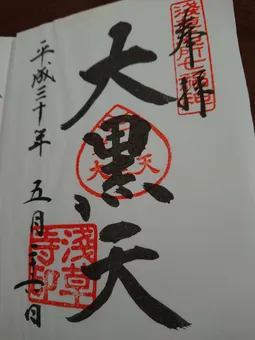 奉拝
浅草名所七福神
大黒天
大天
浅草寺印
平成三十年 五月